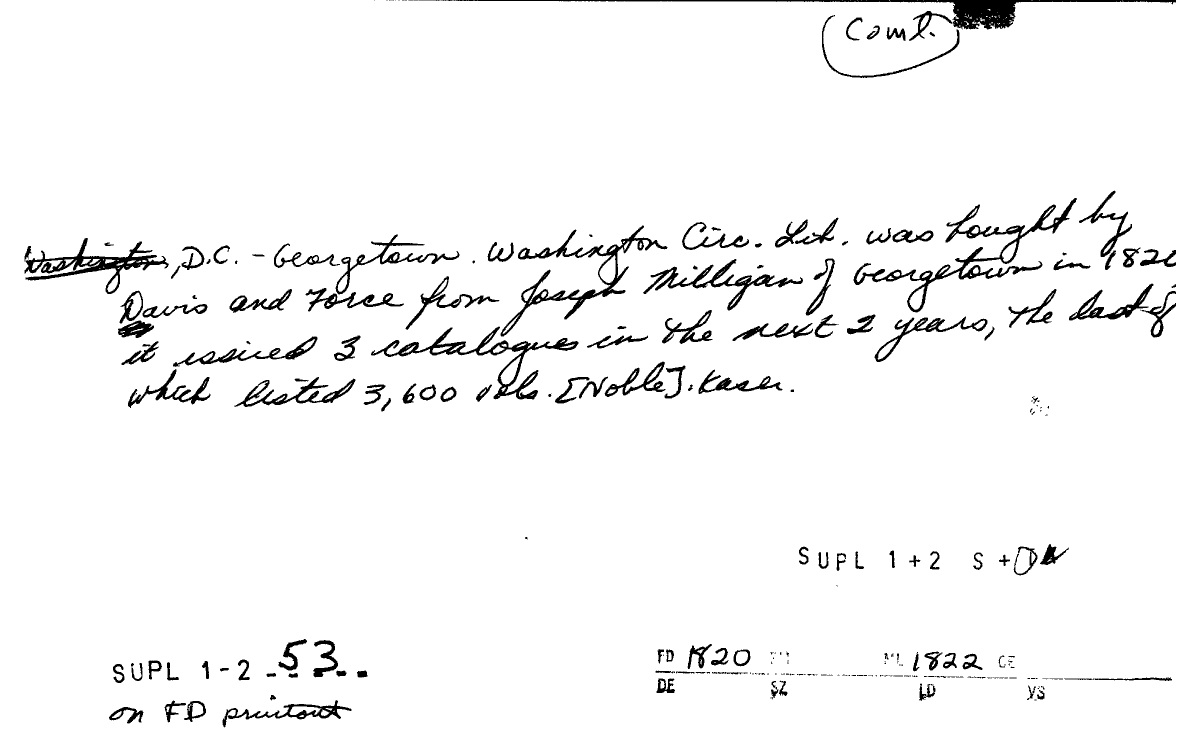 Coml.
Washington, D.C. - Georgetown. Washington Circ. Lib. was bought by
Davis and Force from Joseph Milligan of Georgetown in 1820
it issued 3 catalogues in the next 2 years, the last of
which listed 3,600 vols. [Noble]. Kaser.
SUPL 1+2 S+
SUPL 1-2 53
on FD printout
FD 1820 ML 1822 CE
DE SZ LD VS